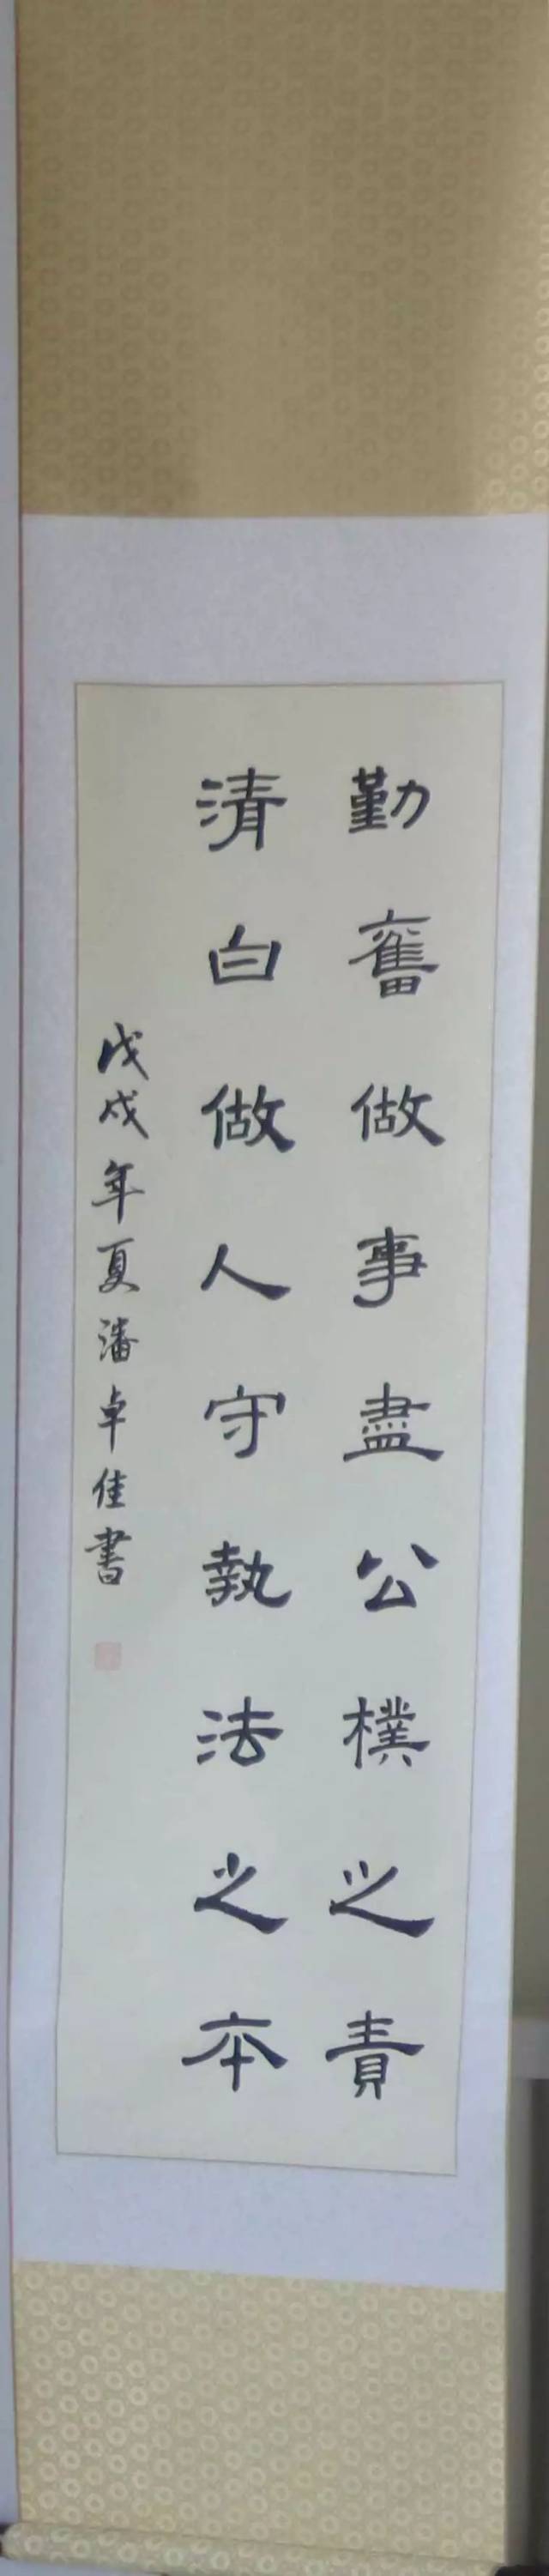 勤奮做事盡公樸之責
清白做人守執法之本
戊戌年夏潘卓佳書